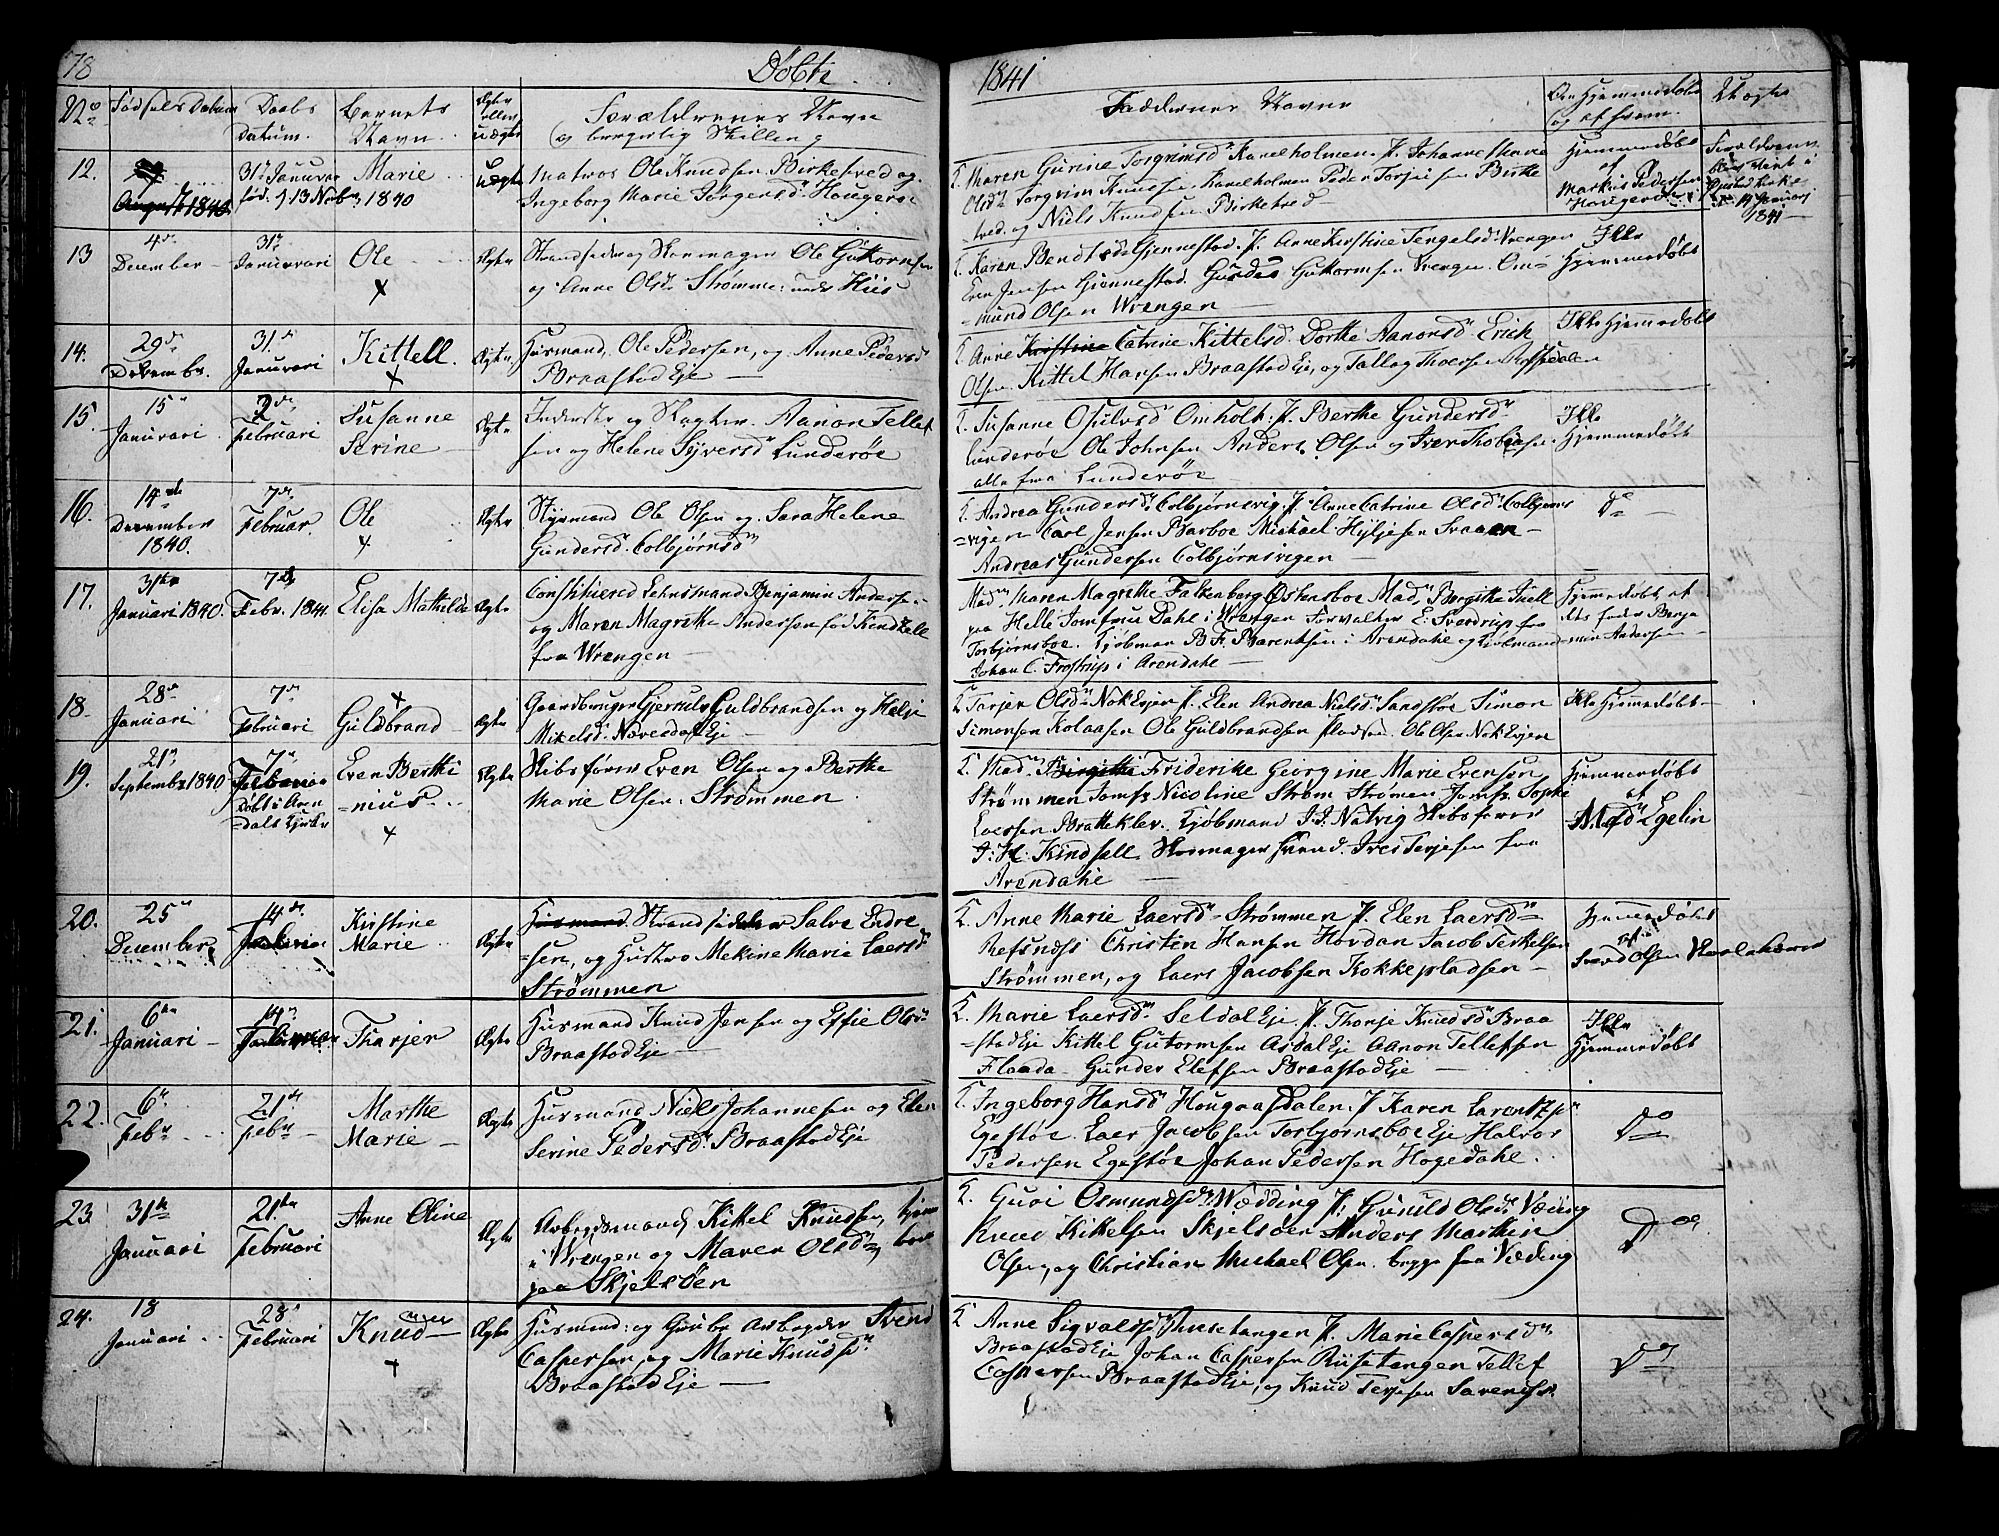 78 Döbte 1841
No Födsels Datum Daabs Datum. Barnets Navn Ægte eller uægte Forældrenes Navn og borgerlig Stilling Faddernes Navne Om Hjemmedøbt og af hvem.
12. August 1840 31te Januar fød. d 13 Novbr 1840 Marie Uægte
Matros Ole Knudsen Birketved og
Ingeborg Marie Jörgensd. Hougerø
Maren Gurine Torgrimsd. Kanelholmen. Johanne Marie
Olsd. Torgrim Knudsen Kanelholmen Peder Torjesen Birke
tved og Niels Knudsen Birketved
Hjemmedöbt
af
Markus Pedersen
Hougerø
1841
13 4de December 31te Januari Ole Ægte
Strandsidder og Skomager Ole Guttormsen
og Anne Olsd. Strømme
Karen Bendtsd. Gjennestad. Anne Kirstine Tengelsd. Wrengen
Even Jensen Gjennestad. Guttormsen Wrengen. Os
mund Olsen Wrengen
Ikke
Hjemmedöbt
14. 29de Decembr. 31te Januari Kittell. Ægte
Husmand, Ole Pedersen, og Anne Pedersd
Braastad Eje
Anne Catrine Kittelsd. Dorthe Aanonsd. Erick
Olsen Kittel Hansen Braastad Eje, og Tallag Thorsen
Ikke Hjemmedöbt
15. 15de Januari 2de Februari Susanne Serine Ægte
Inderster og Aanon Tellef
sen og Helene Syversd. Lunderöe
Susanne Osulvsd Omholt. Berthe Gundersd.
Lunderöe Ole Johnsen Anders Olsen og Iver Thobiasen
alle fra Lunderöe
Ikke
Hjemmedöbt
16. 14de December 1840. 7de Februar. Ole Ægte
Styrmand Ole Olsen og Sara Helene
Gundersd. Colbjørnsd
Andrea Gundersd. Colbjørnsvig. Anne Catrine Olsd. Colbjøns
=vigen Carl Jensen Barboe Michael Svaaen
Andreas Gundersen Colbjørnsvigen
do
17. 31te Januari 1840. 7de Febr. 1841 Elisa Mathilda Ægte
Constituered Lehnsmand Benjamin Andersen
og Maren Magrethe Andersen fød Kindhall
fra Wrengen
Madm Maren Magrethe Falkenberg Østensboe Madm Bergitha Juell
paa Helle Jomfrue Dahl i Wrengen Forvalter E. Sverdrup fra
Torbjørnsboe. Kjöbman B F. Barentsen i Arendahl og Kjöbmand
Johan C. Frostrup i Arendahl
Hjemmedöbt af
dets fader Benja
min Andersen
18. 28de Januari 7de Februari Guldbrand Ægte
Gaardbruger Gjerrulv Guldbrandsen og Helje
Mikelsd. Nævesdal Eje
Tarjer Olsd. Elen Andrea Nielsd. Sandstöe Simon
Simonsen Kolaasen Ole Guldbrandsen Ole Olsen
Ikke Hjemmedöbt
19. 21de September 1840 7de Döbt i Aren dals Kirke Even Berthi =nius Ægte
Skibsförer Even Olsen og Berthe
Marie Olsen. Strömmen
Madm Friderike Georgine Marie Evensen
Strömmen Jomfr. Nicoline Ström Strömen Jomfr. Sophie
Laersen Bratteklev. Kjöbmand Natvig Skibsförer
Kindhall Skomager fra
Arendahl
Hjemmedöbt
af
Madm Egelin
20. 25de December 14de Kirstine Marie Ægte
Strandsidder Salve Endre
=sen, og Hustro Mekine Marie Laersd
Strömmen
Anne Marie Laersd. Strömmen Elen Laersd.
Refsnæss Christen Hansen Hovdan Jacob Terkelsen
Strömmen, og Laers Jacobsen Kokkepladsen
Hjemmedöbt
af
Svend Olsen
21. 6te Januari 14de Tharjer Ægte
Husmand Knud Jensen og Effie Olsd
Braastad Eje
Marie Laersd. Seldal Eje. Thonje Knudsd Braa
=stad Eje Kittel Gutormsen Asdal Eje Aanon Tellefsen
Flaada Gunder Elefsen Braastad Eje
Ikke
Hjemmedöbt
22. 6te Febr 21de Febr Marthe Marie Ægte
Husmand Niels Johannesen og Elen
Serine Pedersd. Braastad Eje
Ingeborg Hansd. Hougaasdalen. Karen Larentz
Egestöe. Laers Jacobsen Torbjørnsboe Eje Halvor
Pedersen Egestöe Johan Pedersen Hogedahl.
do
23. 31te Januari 21de Februari Anne Oline Ægte
Arbejdsmand Kittel Knudsen, hjemme
i Wrengen og Maren Olsd.
paa Skjelsöen
Guroi Osmundsd. Wædding Gunild Olsd. Væding
Knud Kittelsen Skjelsöen Anders Marthin
Olsen, og Christian Michael Olsen begge fra Væding
do
24. 18 Januari 28de Februari Knud Ægte
Husmand og Grube Arbejder Svend
Caspersen og Marie Knudsdn
Braastad Eje
Anne Sigvaldsd. Rusetangen. Marie Caspersd.
Braastad Eje Johan Caspersen Rusetangen Tellef
Caspersen Braastad Eje, og Knud Terjesen
do